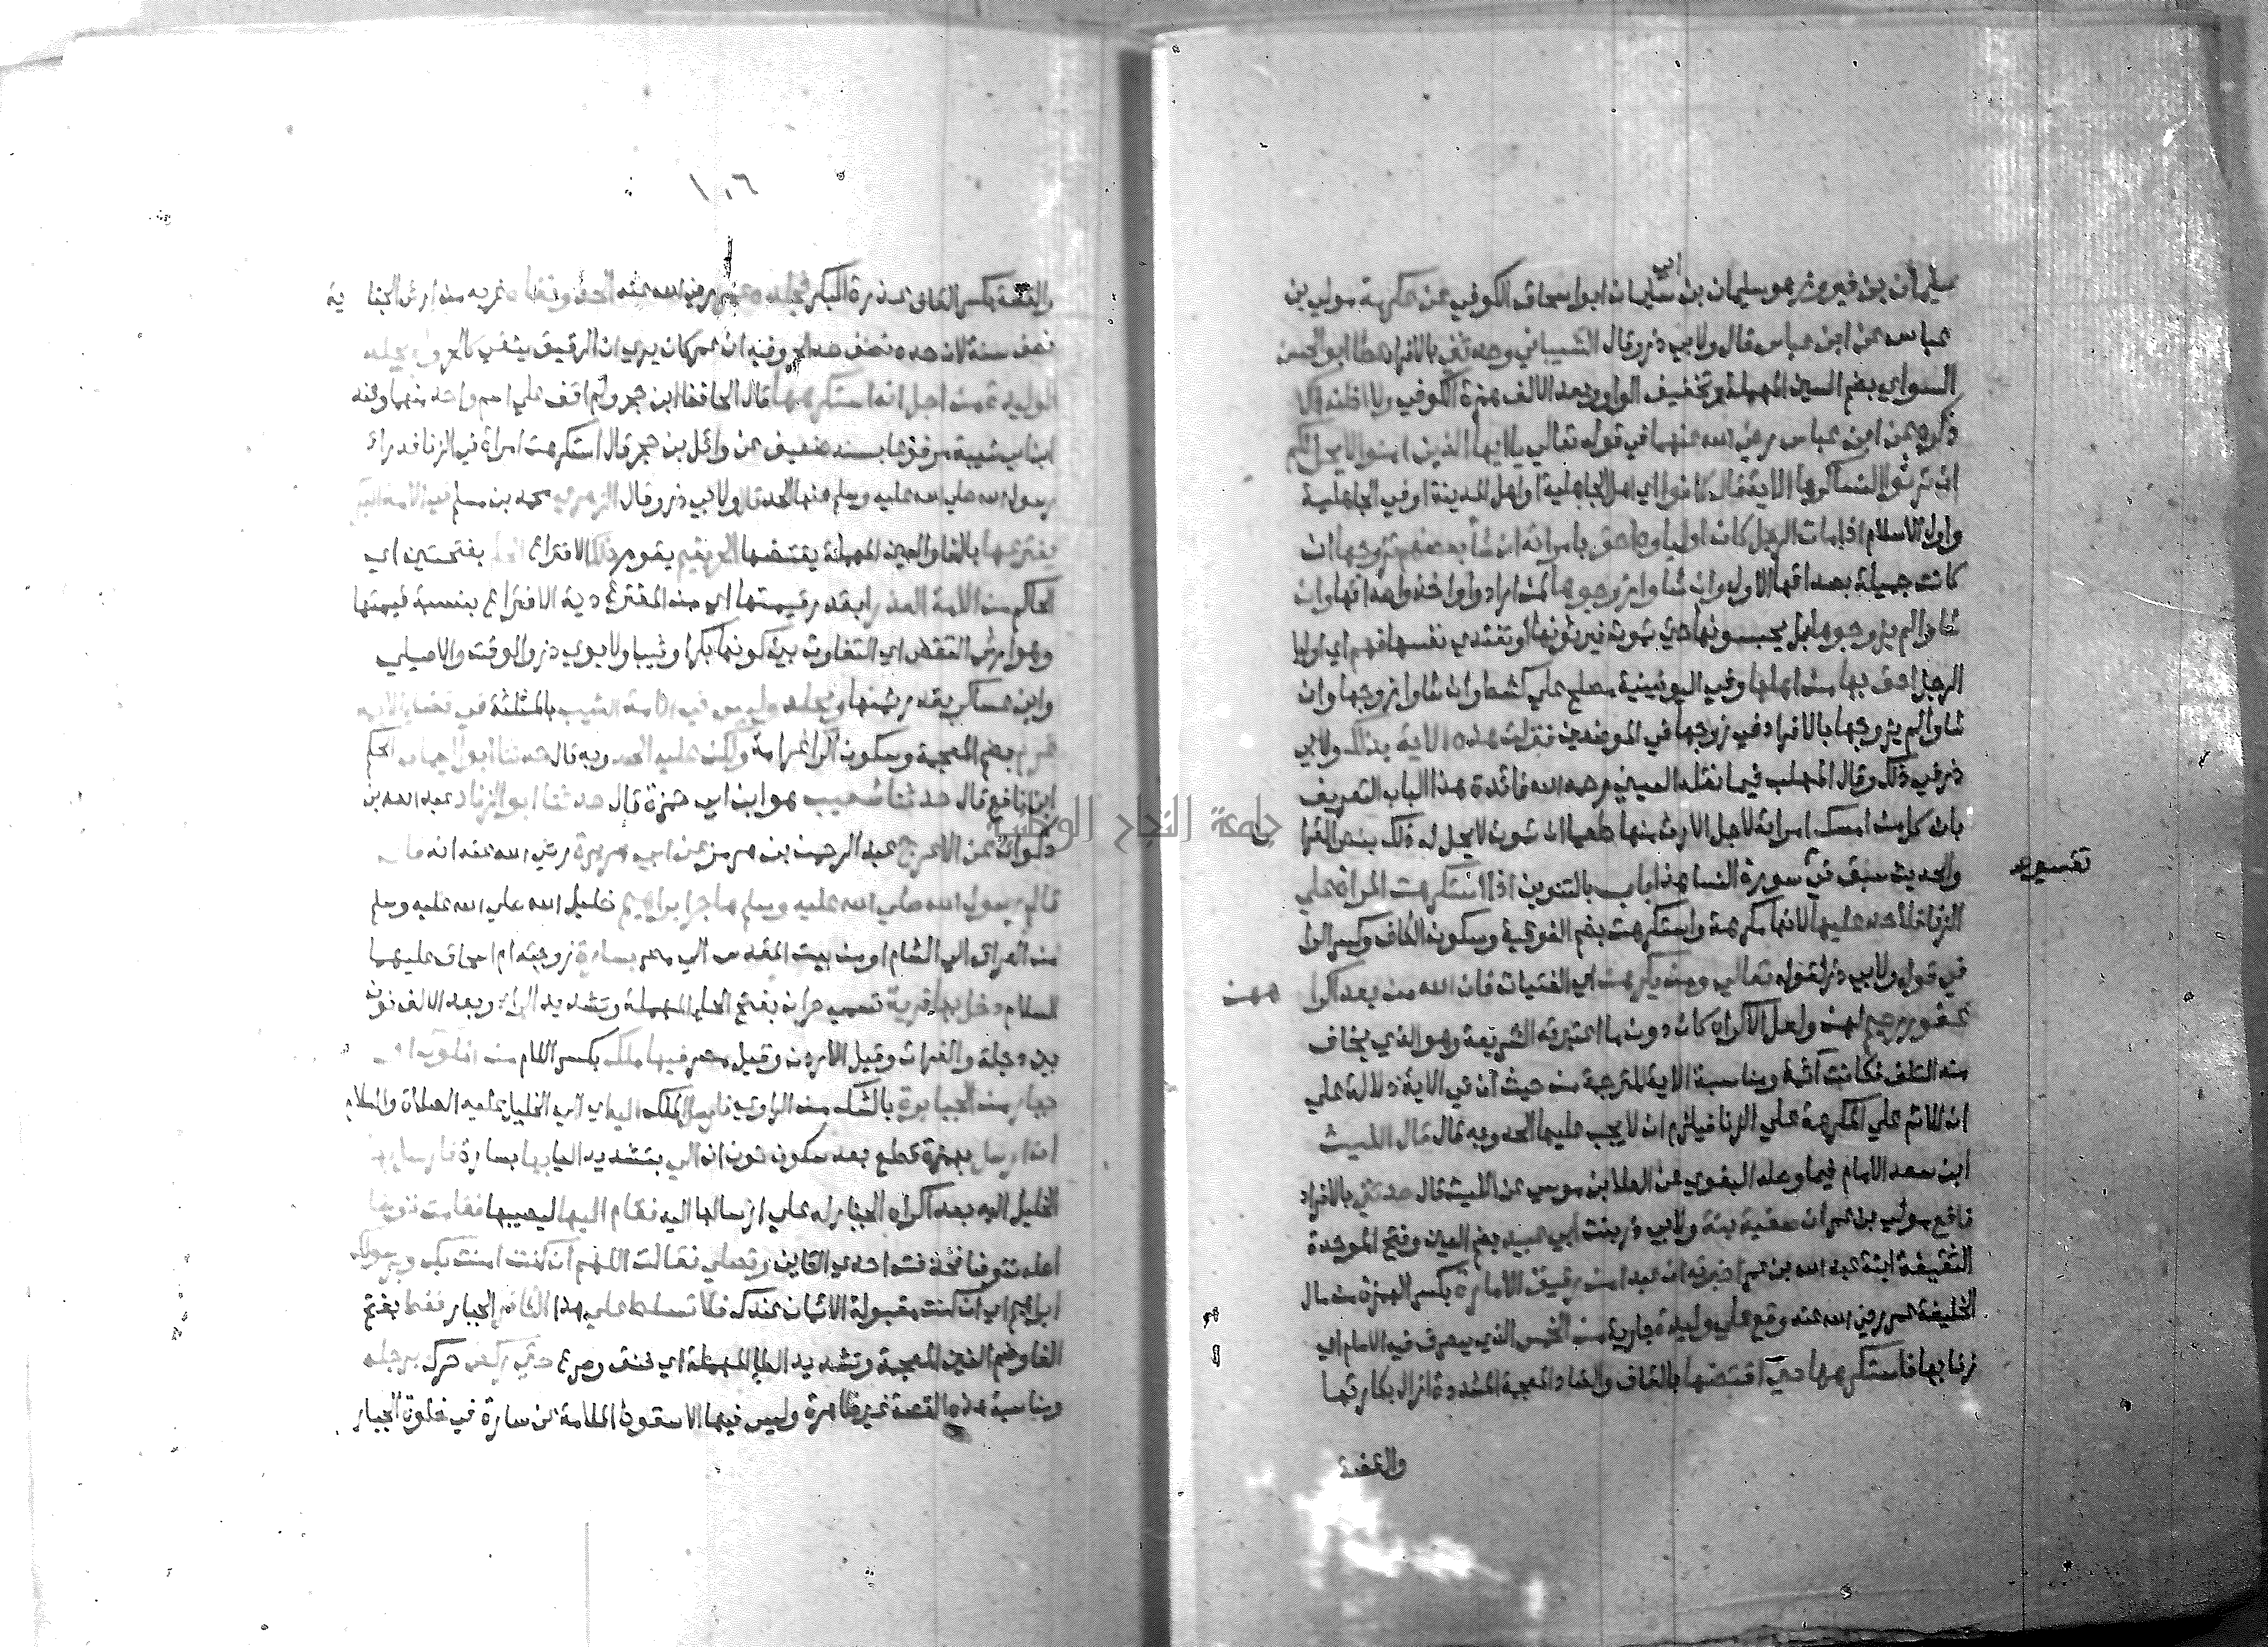 سليمان بن فيروز هو سليمان بن ابي سليمان ابو اسحاق الكوفي عن عكرمة مولي بن
عباس عن ابن عباس قال ولابي ذر وقال الشيباني وحدثني بالافراد عطا ابو الحسن
السواي بضم السين المهملة وتخفيف الواو وبعد الالف همزة الكوفي ولا اظنه الا
ذكره عن ابن عباس رضي الله عنهما في قوله تعالي يا ايها الذين امنوا لا يحل لكم
ان ترثوا النسا كرها الاية قال كانوا اي اهل الجاهلية او اهل المدينة او في الجاهلية
واول الاسلام اذا مات الرجل كان اولياوه احق بامراته ان شا بعضهم تزوجها ان
كانت جميلة بصداقها الاول وان شاوا زوجوها لمن ارادوا واخذوا صداقها وان
شاوا لم يزوجوها بل يحبسونها حتي تموت فيرثونها او تفتدي نفسها فهم اي اوليا
الرجل احق بها من اهلها وفي اليونينية مصلح علي كشط وان شاوا زوجها وان
شاوا لم يزوجها بالافراد في زوجها في الموضعين فنزلت هذه الاية بذلك ولابي
ذر في ذلك وقال المهلب فيما نقله العيني رحمه الله فائدة هذا الباب التعريف
بان كل من امسك امراته لاجل الارث منها طمعا ان تموت لا يحل له ذلك بنص القرا
والحديث سبق في سورة النسا هذا باب بالتنوين اذا استكرهت المراة علي
تفسير
الزنا فلا حد عليها لانها مكرهة واستكرهت بضم الفوقية وسكون الكاف وكسر الرا
في قوله ولابي ذر لقوله تعالي ومن يكرههن اي الفتيات فان الله من بعد اكرا ههن
غفور رحيم لهن ولعل الاكراه كان دون ما اعتبرته الشريعة وهو الذي يخاف
منه التلف فكانت آثمة ومناسبة الاية للترجمة من حيث ان في الاية دلالة علي
ان لا اثم علي المكرهة علي الزنا فيلزم ان لا يجب عليها الحد وبه قال قال الليث
ابن سعد الامام فيما وصله البغوي عن العلا بن موسي عن الليث قال حدثني بالافراد
نافع مولي بن عمر ان صفية بنة ولابي ذر بنت ابي عبيد بضم العين وفتح الموحدة
الثقيفة ابنة عبد الله بن عمر اخبرته ان عبدا من رقيق الامارة بكسر الهمزة من مال
الخليفة عمر رضي الله عنه وقع علي وليدة جارية من الخمس الذي يتصرف فيه الامام اي
زنا بها فاستكرهها حتي اقتضها بالقاف والضاد المعجمة المشددة ازال بكارتها
والقضة
١٠٦
والقضة بكسر القاف عذرة البكر فجلده عمر رضي الله عنه الحد ونفاه غربه من ارض الجناية
نصف سنة لان حده نصف حد الحر وفيه ان عمر كان يري ان الرقيق ينفي كالحر ولم يجلد
الوليدة من اجل انه استكرهها قال الحافظ ابن حجر ولم اقف علي اسم واحد منهما وعند
ابن ابي شيبة مرفوعا بسند ضعيف عن وائل بن حجر قال استكرهت امراة في الزنا فدرا
رسول الله صلي الله عليه وسلم عنها الحد قال ولابي ذر وقال الزهري محمد بن مسلم في الامة البكر
يفترعها بالفا والعين المهملة يقتضها الحر يقيم يقوم ذلك الافتراع الحكم بفتحتين اي
الحاكم من الامة العذرا بقدر قيمتها اي من المفترع دية الافتراع بنسبة قيمتها
وهو ارش النقص اي التفاوت بين كونها بكرا وثيبا ولابوي ذر والوقت والاصيلي
وابن عساكر بقدر ثمنها ويجلد وليس في الامة الثيب بالمثلثة في قضا الايمة
غرم بضم المعجمة وسكون الرا غرامة ولكن عليه الحد وبه قال حدثنا ابو اليمان الحكم
ابن نافع قال حدثنا شعيب هو ابن ابي حمزة قال حدثنا ابو الزناد عبد الله بن
ذكوان عن الاعرج عبد الرحمن بن هرمز عن ابي هريرة رضي الله عنه انه قال
قال رسول الله صلي الله عليه وسلم هاجر ابراهيم خليل الله صلي الله عليه وسلم
من العراق الي الشام او من بيت المقدس الي مصر بسارة زوجته ام اسحاق عليهما
السلام دخل بها قرية تسمي حران بفتح الحا المهملة وتشديد الرا وبعد الالف نون
بين دجلة والفرات وقيل الاردن وقيل مصر فيها ملك بكسر اللام من الملوك او
جبار من الجبابرة بالشك من الراوي فارسل الملك اليه اي الي الخليل عليه الصلاة والسلام
ان ارسل بهمزة قطع بعد سكون نون ان الي بتشديد اليا بها بسارة فارسل بها
الخليل اليه بعد اكراه الجبار له علي ارسالها اليه فقام اليها ليصيبها فقامت توضا
اصله تتوضا فحذفت احدي التاين وتصلي فقالت اللهم ان كنت امنت بك وبرسولك
ابراهيم اي ان كنت مقبولة الايمان عندك فلا تسلط علي هذا الكافر الجبار فغط بفتح
الغا وضم الغين المعجمة وتشديد الطا المهملة اي خنق وصرع حتي ركض حرك برجله
ومناسبة هذه القصة غير ظاهرة وليس فيها الا سقوط الملامة عن سارة في خلوة الجبار
جامعة النجاح الوطنية